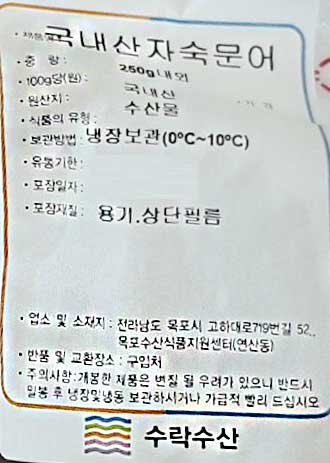 · 제품명 국내산자숙문어
· 중 량 : 250g내외
· 100g당(원) :
국내산
· 원산지 : 수산물
· 식품의 유형 :
· 보관방법 : 냉장보관(0ºC~10ºC)
· 유통기한 :
· 포장일자 :
· 포장재질 : 용기.상단필름
· 업소 및 소재지 : 전라남도 목포시 고하대로719번길 52.,
목포수산식품지원센터(연산동)
· 반품 및 교환장소 : 구입처
· 주의사항:개봉한 제품은 변질 될 우려가 있으니 반드시
밀봉 후 냉장및냉동 보관하시거나 가급적 빨리 드십시오
수락수산